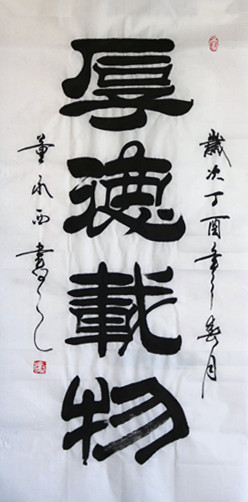 歲次丁酉年之春月
厚德載物
董永西書之